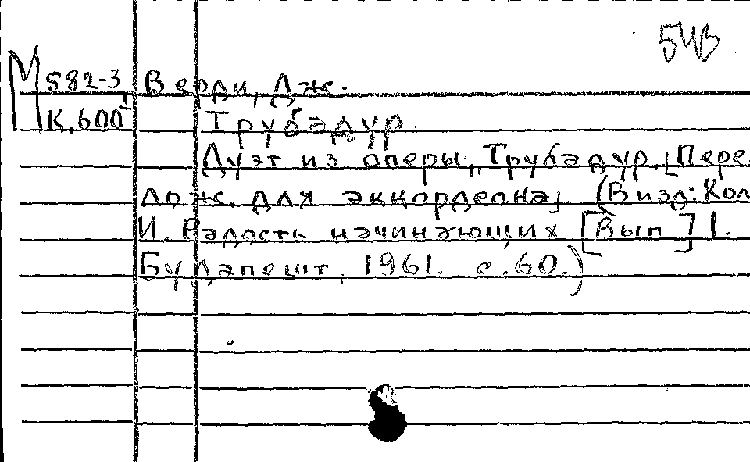 543
М 582-3 Верди, Дж.
К.600 Трубадур.
Дуэт из оперы "Трубадур. [Пере
лож. для аккордеона] (В изд: Кол
И. Радость начинающих [Вып] 1.
Будапешт, 1961. с.60.)